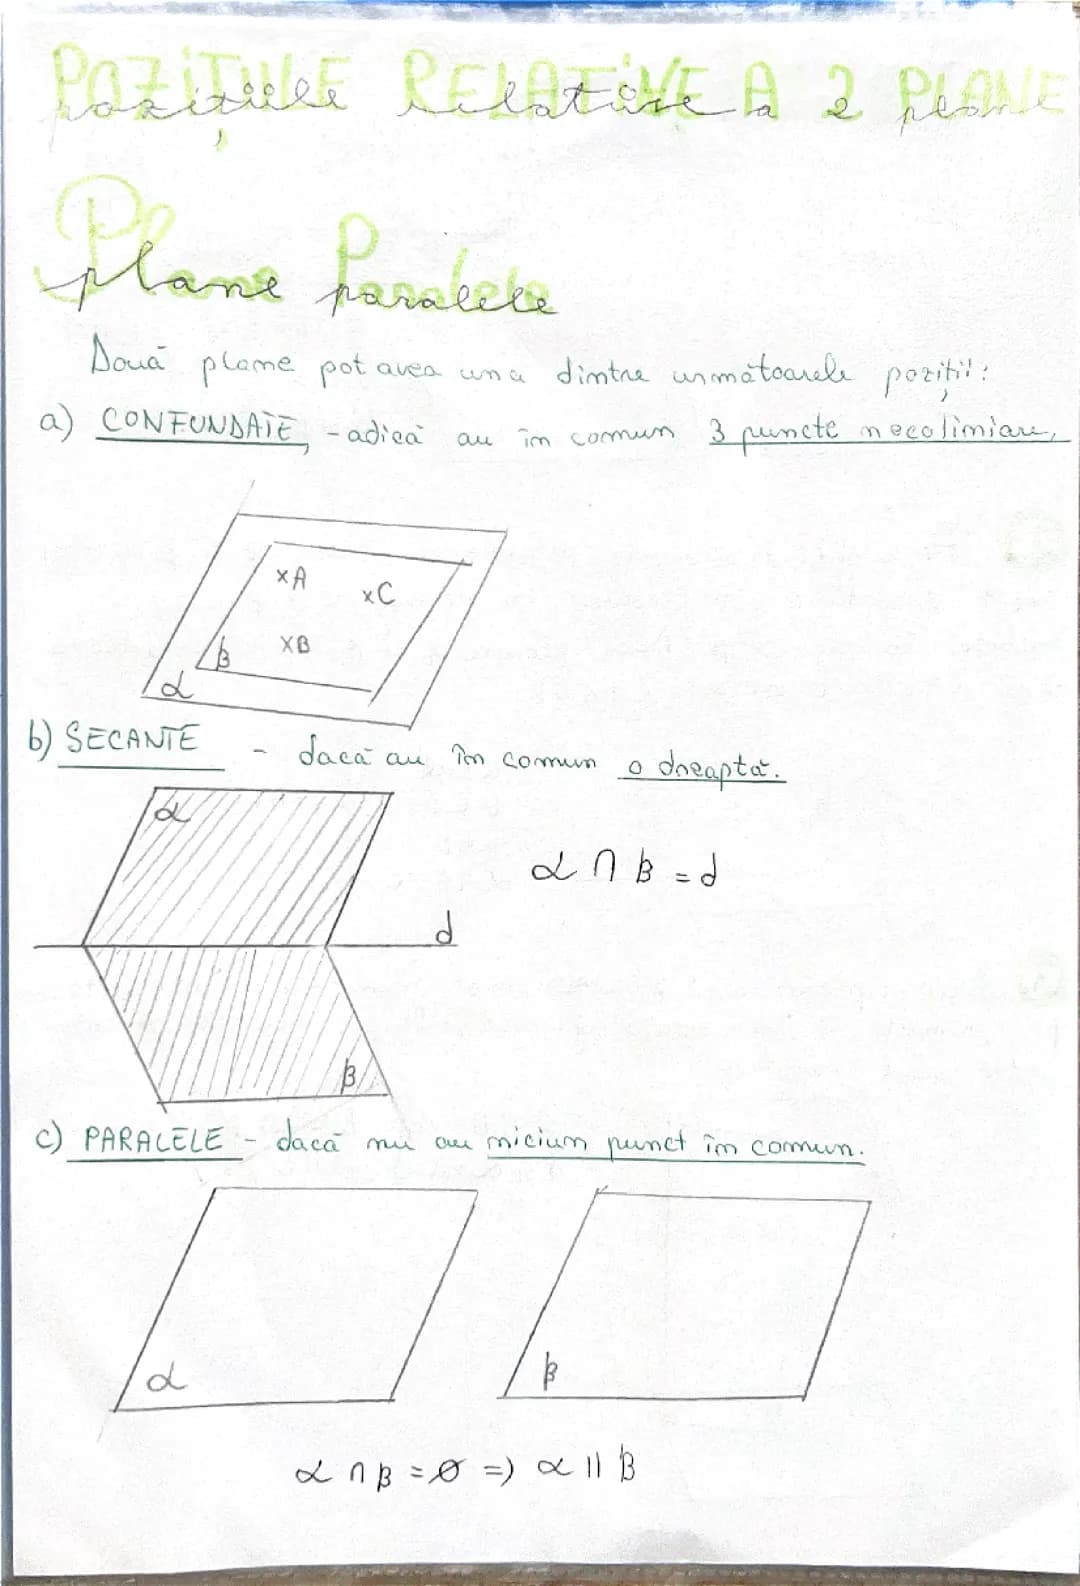 POZIȚIILE RELATIVE A 2 PLANE
pozițiile relative a 2 plane
Plane Paralele
plane paralele
Două plane pot avea una dintre următoarele poziții:
a) CONFUNDATE, - adică au în comun 3 puncte necoliniare,
xA
xC
xB
β
α
b) SECANTE - dacă au în comun o dreaptă.
α
α ∩ β = d
d
β
c) PARALELE - dacă nu au niciun punct în comun.
α
β
α ∩ β = ∅ => α || β